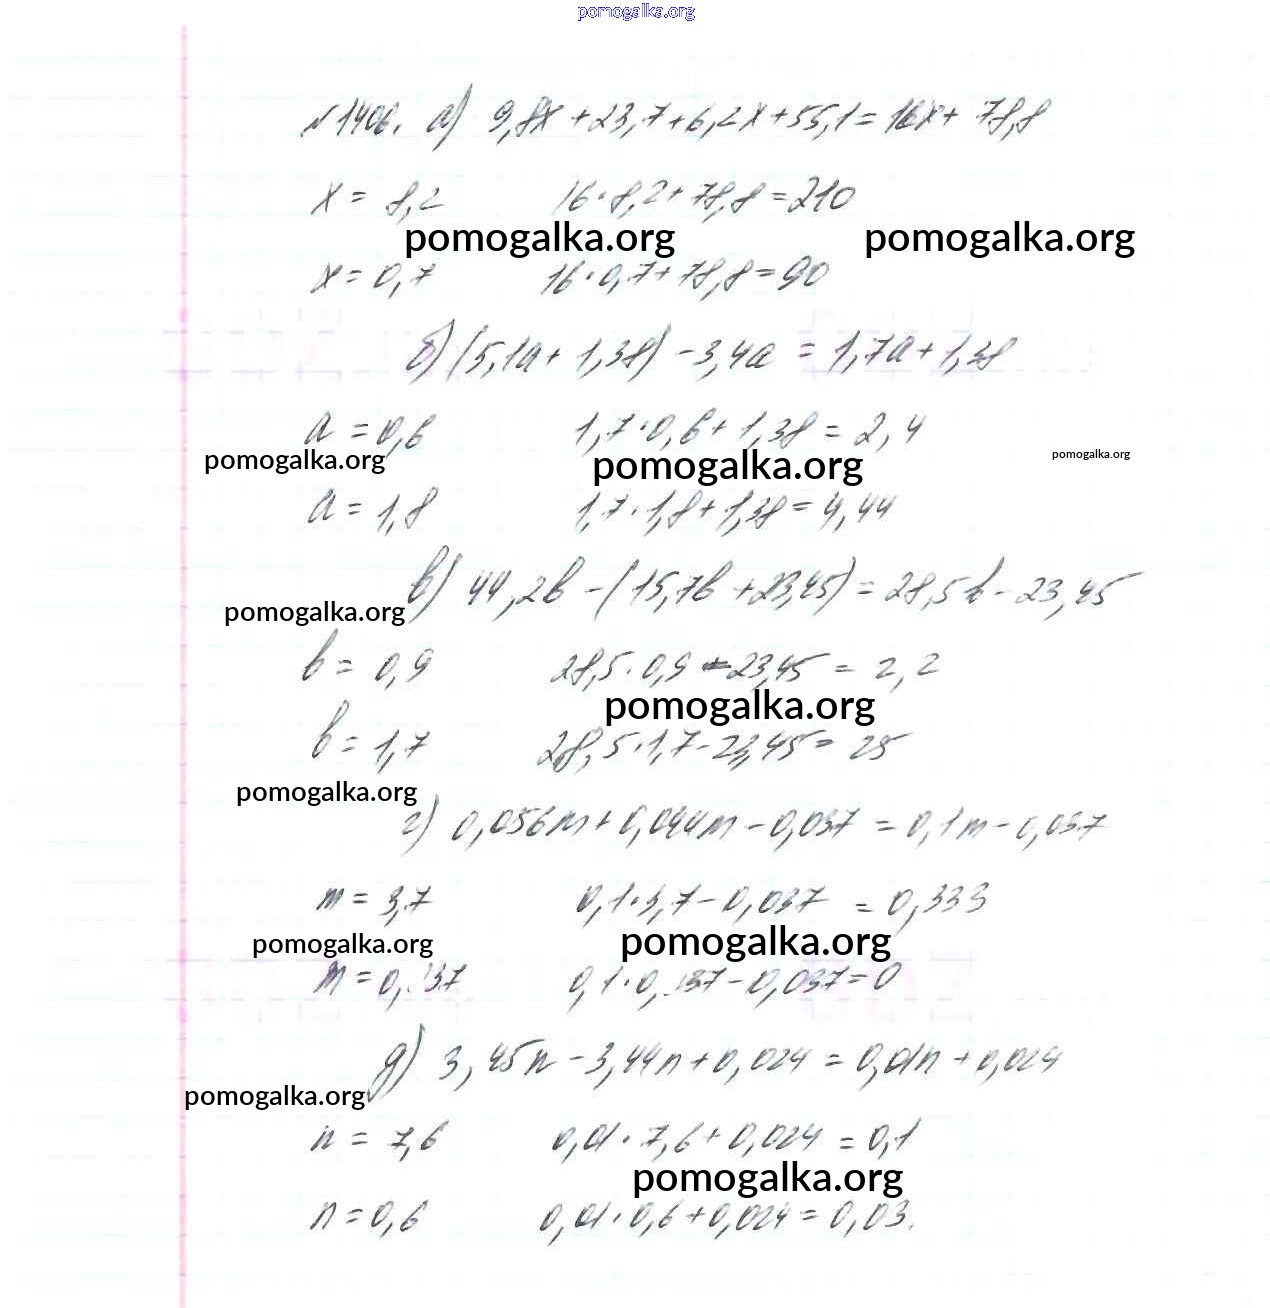 pomogalka.org
№1406. а) 9,8x + 23,7 + 6,2x + 55,1 = 16x + 78,8
x = 8,2 16·8,2 + 78,8 = 210
pomogalka.org pomogalka.org
x = 0,7 16·0,7 + 78,8 = 90
б) (5,1a + 1,38) - 3,4a = 1,7a + 1,38
a = 0,6 1,7·0,6 + 1,38 = 2,4
pomogalka.org pomogalka.org pomogalka.org
a = 1,8 1,7·1,8 + 1,38 = 4,44
в) 44,2b - (15,7b + 23,45) = 28,5b - 23,45
pomogalka.org
b = 0,9 28,5·0,9 - 23,45 = 2,2
pomogalka.org
b = 1,7 28,5·1,7 - 23,45 = 25
pomogalka.org
г) 0,056m + 0,044m - 0,037 = 0,1m - 0,037
m = 3,7 0,1·3,7 - 0,037 = 0,333
pomogalka.org pomogalka.org
0,037 = 0
д) 3,45n - 3,44n + 0,024 = 0,01n + 0,024
pomogalka.org
n = 7,6 0,01·7,6 + 0,024 = 0,1
pomogalka.org
n = 0,6 0,01·0,6 + 0,024 = 0,03.